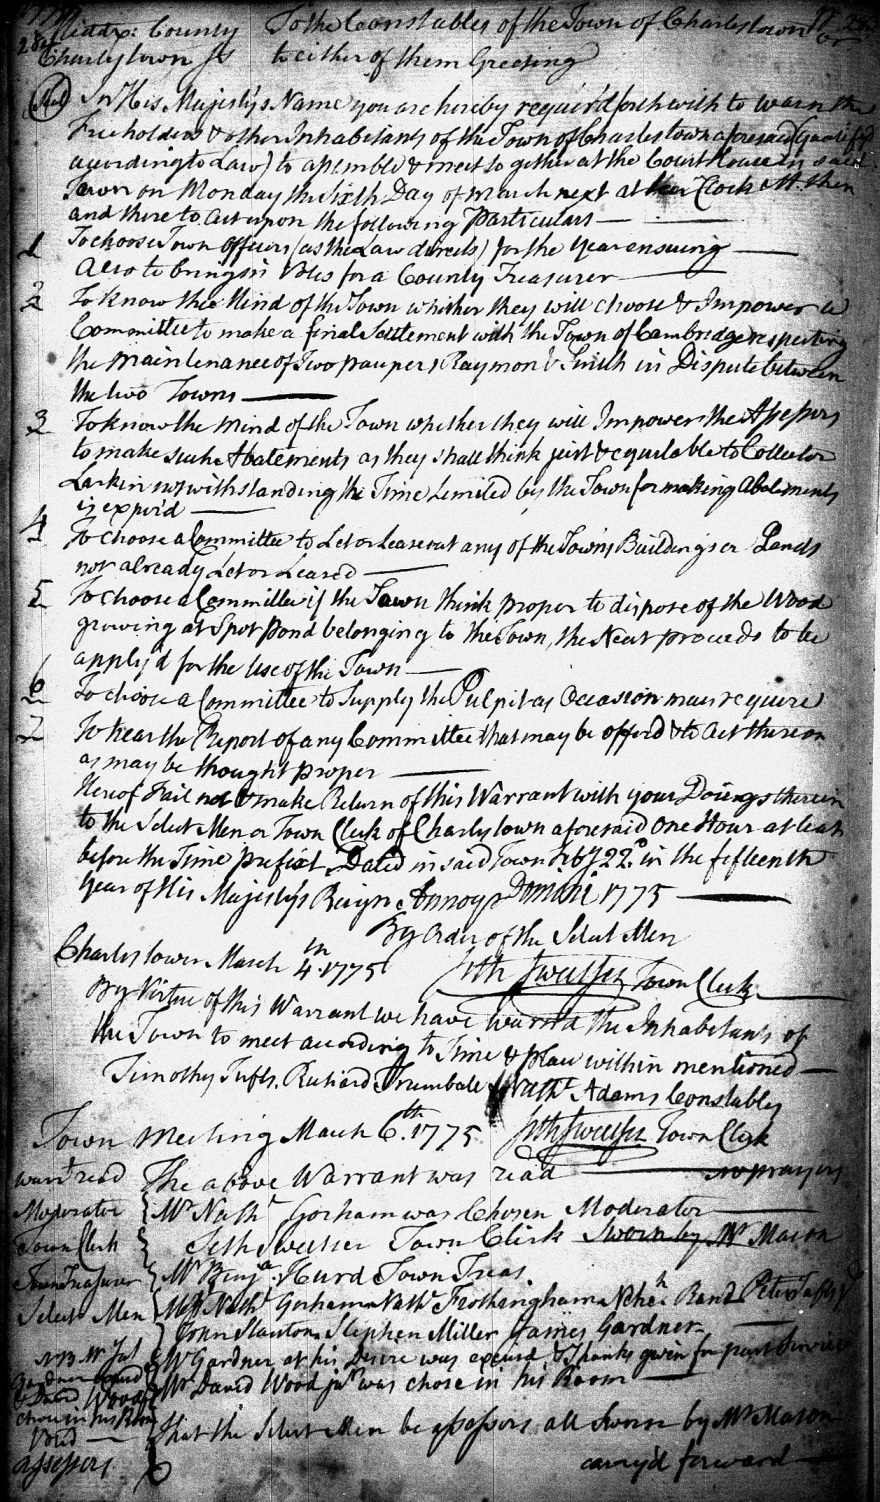 Middx: County To the Constables of the Town of Charlestown or
Charlestown Ss to either of them Greeting
In His Majestys Name you are hereby requir'd forthwith to warn the
Freeholders & other Inhabitants of the Town of Charlestown aforesaid (Qualify'd
according to Law) to assemble & meet together at the Court House in said
Town on Monday the Sixth Day of March next at Clock then
and there to Act upon the following Particulars —
1 To choose Town Officers (as the Law directs) for the Year ensuing —
Also to bring in Votes for a County Treasurer —
2 To know the Mind of the Town whither they will choose & Impower a
Committee to make a final Settlement with the Town of Cambridge respecting
the Maintenance of Two paupers Raymond & Smith in Dispute between
the two Towns —
3 To know the Mind of the Town whether they will Impower the Assessors
to make such Abatements as they shall think just & equitable to Collector
Larkin notwithstanding the Time Limited by the Town for making Abatements
is expir'd —
4 To choose a Committee to Let or Lease out any of the Towns Buildings or Lands
not already Let or Leased —
5 To choose a Committee if the Town think proper to dispose of the Wood
growing at Spot Pond belonging to the Town, the Neat proceeds to be
apply'd for the Use of the Town —
6 To choose a Committee to Supply the Pulpit as Occasion may require
7 To hear the Report of any Committee that may be offerd & to Act thereon
as may be thought proper —
Hereof Fail not & make Return of this Warrant with your Doings therein
to the Select Men or Town Clerk of Charlestown aforesaid One Hour at least
before the Time prefixt. Dated in said Town Feby 22d in the fifteenth
Year of His Majestys Reign Annoqe Domini 1775 —
By Order of the Select Men
Charlestown March 4th 1775 Seth Sweetser Town Clerk
By Virtue of this Warrant we have warnd the Inhabitants of
the Town to meet according to Time & place within mentioned —
Timothy Tufts. Richard Trumbale & Nathl Adams Constables
Town Meeting March 6th. 1775 Seth Sweetser Town Clerk
warrt read The above Warrant was read — no prayers
Moderator Mr Nathl Gorham was Chosen Moderator —
Town Clerk Seth Sweetser Town Clerk Sworn by Mr Mason
Town Treasurer Mr Benja. Hurd Town Treas
Select Men Mr Nathl Gorham Nathl Frothingham Neheh Rand Peter Tufts
John Stanton Stephen Miller James Gardner
NB Mr Jas Mr Gardner at his Desire was excusd & Thanks given for past Service
Gardner excusd & David Wood Mr David Wood junr was chose in his Room —
chose in his Room
Voted — That the Select Men be assessors all Sworn by Mr Mason
assessors carry'd forward —